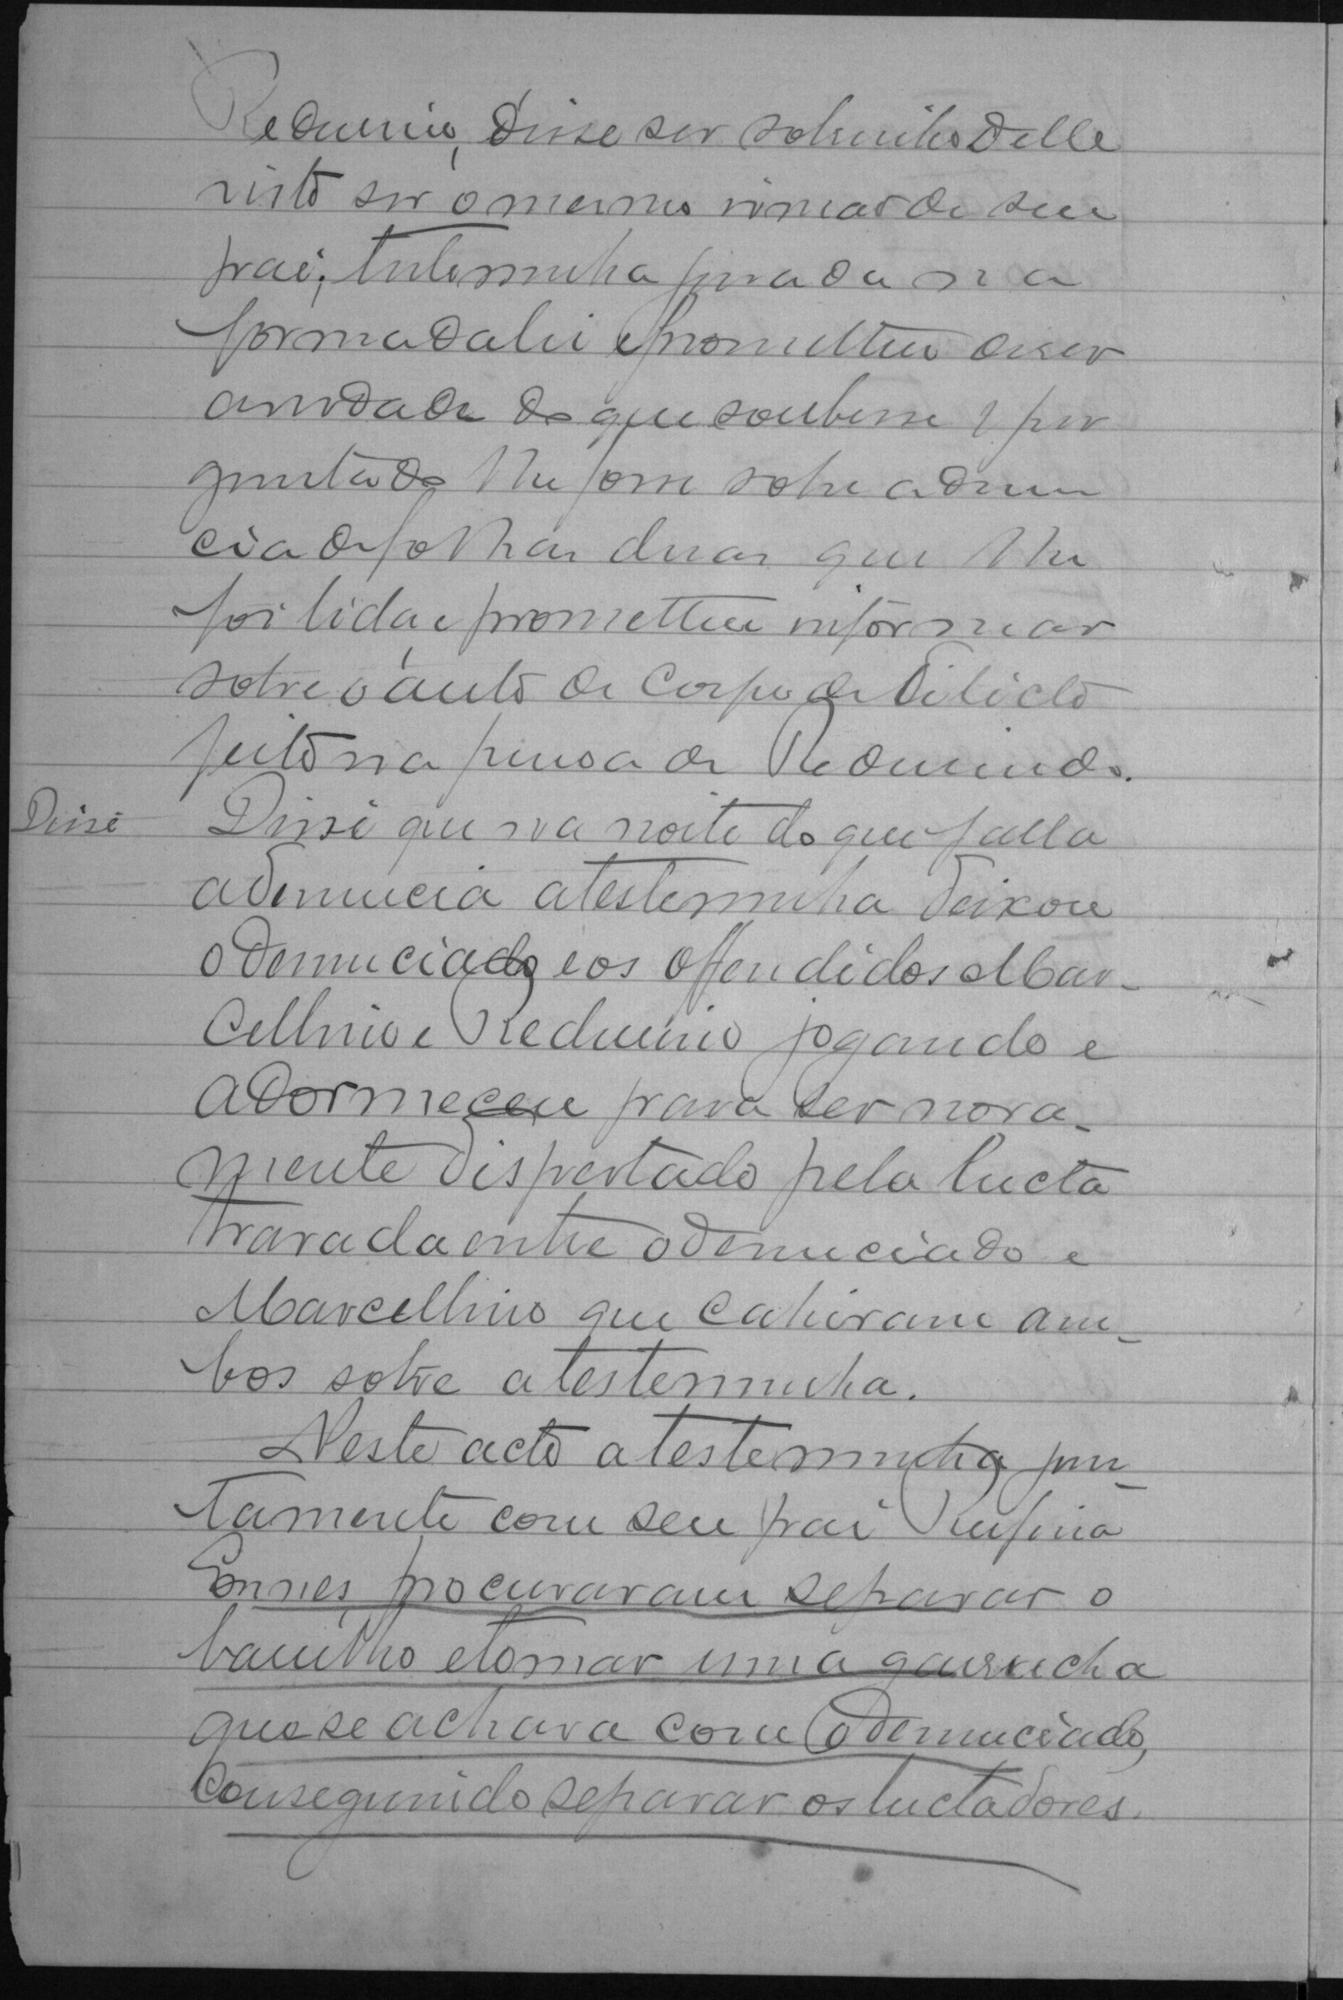 Reduzino, disse ser sobrinho delle
visto ser o mesmo irmão de seu
pai; testemunha jurada na
forma da lei e prometteu diser
a verdade do que soubesse e per
guntado lhe fosse sobre a denun
cia de folhas duas que lhe
foi lida, e prometteu informar
sobre o auto de Corpo de Delicto
feito na pessoa de
Disse Disse que na noite do que falla
a denuncia a testemunha deixou
o denunciado e os offendidos Mar-
cellino e jogando e
adormeceu para ser nova-
mente dispertado pela lucta
travada entre o denunciado e
Marcellino que cahiram am-
bos sobre a testemunha.
Neste acto a testemunha jun-
tamente com seu pai
procuraram separar o
barulho e tomar uma garrucha
que se achava com o denunciado,
conseguindo separar os luctadores.